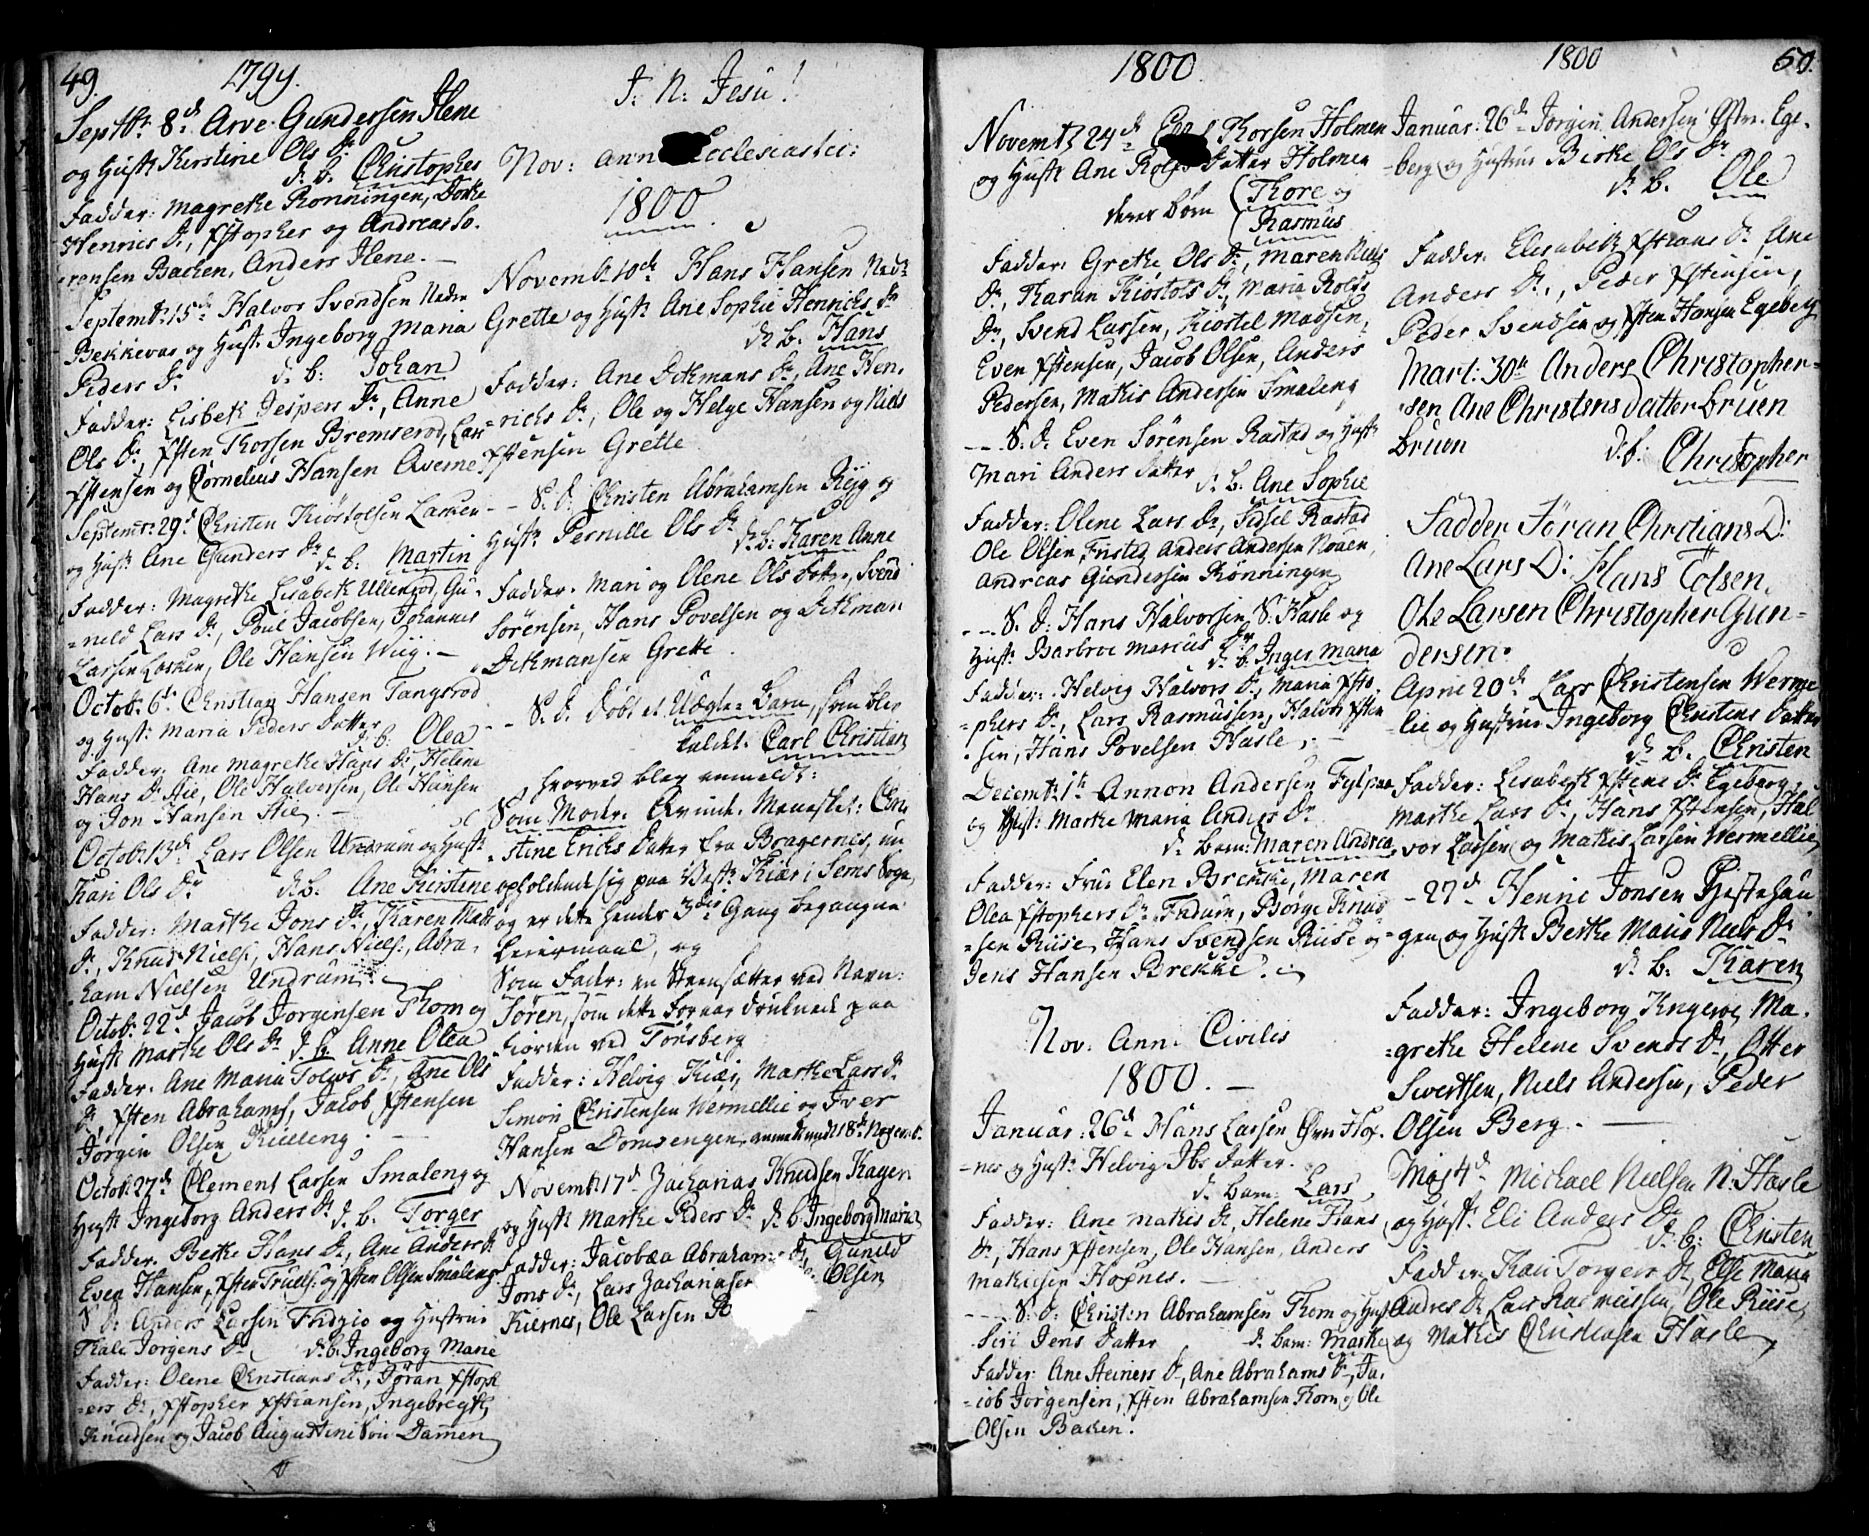 49. 1799.
Septbr: 8d Arve Gundersen Ilene
og Hustr Kerstine Ols Dr
d. b. Christopher
Fadder: Magrethe Rønningen, Dorthe
Henrics Dr, Xstopher og Andreas So-
rensen Backen, Anders Ilene. —
Septembr: 15d Halvor Svendsen Nedre
Bekkevar og Hustr Ingeborg Maria
Peders Dr d. b: Johan
Fadder: Lisbeth Jespers Dr, Anne
Ols Dr, Xsten Thorsen Bremserød, Lars
Xstensen og Cornelius Hansen Averne
Septembr: 29d Christen Kiøstolsen Lasken
og Hustr Ane Gunders Dr
d. b: Martin
Fadder: Magrethe Lisabeth Ullerød, Gu-
=neld Lars Dr, Poul Jacobsen, Johannes
Larsen Lasken, Ole Hansen Wiig. —
Octob: 6d Christian Hansen Tangsrod
og Hustr: Maria Peders Datter
d. b: Olea
Fadder: Ane Magrethe Hans Dr, Helene
Hans Dr Aie, Ole Halversen, Ole Hansen
og Jon Hansen Aie. —
Octob: 13d Lars Olsen Undrum og Hustr
Kari Ols Dr d. b. Ane Kirstine
Fadder: Marthe Jons Dr, Karen Matt
Dr, Knud Niels:, Hans Niels:, Abra-
ham Nielsen Undrum.
Octob: 22d Jacob Jorgensen Thom og
Hustr Marthe Ols Dr d. b. Anne Olea
Fadder. Ane Maria Tolevs Dr, Ane Ols
Dr, Xsten Abrahams, Jakob Xstensen
Jørgen Olsen Killeng. —
Octob: 27d Clement Larsen Smaleng og
Hustr Ingeborg Anders Dr d. b. Torger
Fadder. Berthe Hans Dr, Ane Anders Dr
Even Hansen, Xsten Truels: og Xsten Olsen Smaleng
S. D. Anders Larsen Fridgio og Hustrue
Thale Jorgens Dr d. b. Ingeborg Marie
Fadder: Olene Christians Dr, Jøran Xstoph
=ers Dr, Xstopher Xstiansen, Ingebregt
Knudsen og Jacob Augustinesøn Damen
J. N. Jesu!
Nov: Ann Ecclesiastici:
1800.
Novembr: 10de Hans Hansen Nedr
Grette og Hustr Ane Sophie Henrichs Dr
d. b. Hans
Fadder: Ane Dithmans Dr, Ane Hen-
=richs Dr, Ole og Helge Hansen og Niels
Xstensen Grette
— S. D. Christen Abrahamsen Rygg og
Hustr Pernille Ols Dr
d. b: Karen Anne
Fadder. Mari og Olene Ols Datter, Svend
Sørensen, Hans Povelsen og Dithman
Dithmansen Grette.
— S. D. Døbt et Uægte Barn, som blev
kaldet. Carl Christian
hvorved blev anmeldt:
Som Moder Qvinde Mennesket: Chri-
stine Erichs Datter fra Bragernes, nu
opholdende sig paa Vestr Kiær i Sems Sogn
og er dette hendes 3die Gang begangne
Leiermaal, og
Som Fader: en Steensætter ved Navn:
Søren, som dette Foraar druknede paa
Fiorden ved Tønsberg
Fadder: Helvig Kiær, Marthe Lars Dr
Simon Christensen Wermellie og Iver
Hansen Domvengen, anmeldt 18de Novembr:
Novembr: 17d Zacharias Knudsen Kager
og Hustr Marthe Peders Dr d. b. Ingeborg Maria
Fadder: Jacobæa Abraham Dr, Gunild
Jons Dr, Lars Zachariasen Olsen
Kiernes, Ole Larsen
1800.
Novembr 24d Thorsen Holmen
og Hustr Ane Rolfs Datter Holmen
deres Børn (Thore og
Rasmus
Fadder: Grethe Ols Dr, Maren Niels
Dr, Karan Kiøstols Dr, Maria Rolfs
Dr, Svend Larsen, Kiøstel Madsen,
Even Xstensen, Jacob Olsen, Anders
Pedersen, Mathis Andersen Smaleng
— S. D. Even Sørensen Rastad og Hustr
Mari Anders Datter d. b. Ane Sophie
Fadder: Olene Lars Dr, Sidsel Rastad
Ole Olsen Fristed, Anders Andersen Nouen,
Andreas Gundersen Rønningen
— S. D. Hans Halvorsen S. Hasle og
Hustr: Barbroe Marcus Dr
d. b. Inger Maria
Fadder: Helvig Halvors Dr, Maria Xsto-
=phers Dr, Lars Rasmussen, Halvor Xsten
sen, Hans Povelsen Hasle, —
Decembr: 1st Annon Andersen
og Hustr: Marthe Maria Anders Dr
d. Barn: Maren Andrea
Fadder: Frue Elen Brekke, Maren
Olea Xstophers Dr Endum, Børge Knud
=sen Riise, Hans Svendsen Riise og
Jens Hansen Brekke.
Nov: Ann: Civilis
1800. —
Januar: 26d Hans Larsen Øvre Hox-
nes og Hustr: Helvig Ibs Datter.
d. Barn: Lars
Fadder: Ane Mathis Dr, Helene Hans
Dr, Hans Xstensen, Ole Hansen, Anders
Mathisen Hoxnes. —
— S. D. Christen Abrahamsen Thom og Hust
Siri Jens Datter d. Barn: Marthe
Fadder: Ane Steiners Dr, Ane Abrahams Dr, Ja-
=cob Jørgensen, Xsten Abrahamsen Thom, og Ole
Olsen Backen.
1800 50.
Januar: 26d Jørgen Andersen Østre. Ege-
berg og Hustrue Berthe Ols Dr
d. b. Ole
Fadder: Elisabeth Xstians Dr Ane
Anders Dr, Peder Xstensen,
Peder Svendsen og Xsten Hansen Egeberg
Mart: 30te Anders Christopher-
sen Ane Christens datter bruen
bruen d. b: Christopher
Fadder Jøran Chrstians D:
Ane Lars D: Hans Tolsen,
Ole Larsen Christopher Gun-
dersen.
April 20d Lars Christensen Werme
lie og Hustrue Ingeborg Christens Datter
d. b. Christen
Fadder: Lisabeth Xstens Dr Egeberg,
Marthe Lars Dr, Hans Xstensen, Hal
vor Larsen og Mathis Larsen Wermellie
— 27d Henric Jonsen Prestehau-
gen og Hustr Berthe Marie Niels Dr
d. b. Karen
Fadder: Ingeborg Kngeroe, Ma-
grethe Helene Svends Dr, Otter
Sivertsen, Niels Andersen, Peder
Olsen Berg. —
Maj 4d Michael Nielsen N. Hasle
og Hustr: Eli Anders Dr
d. b: Christen
Fadder: Kari Torgers Dr, Else Maria
Andres Dr Lars Rasmussen, Ole Riise,
og Mathis Christensen Hasle